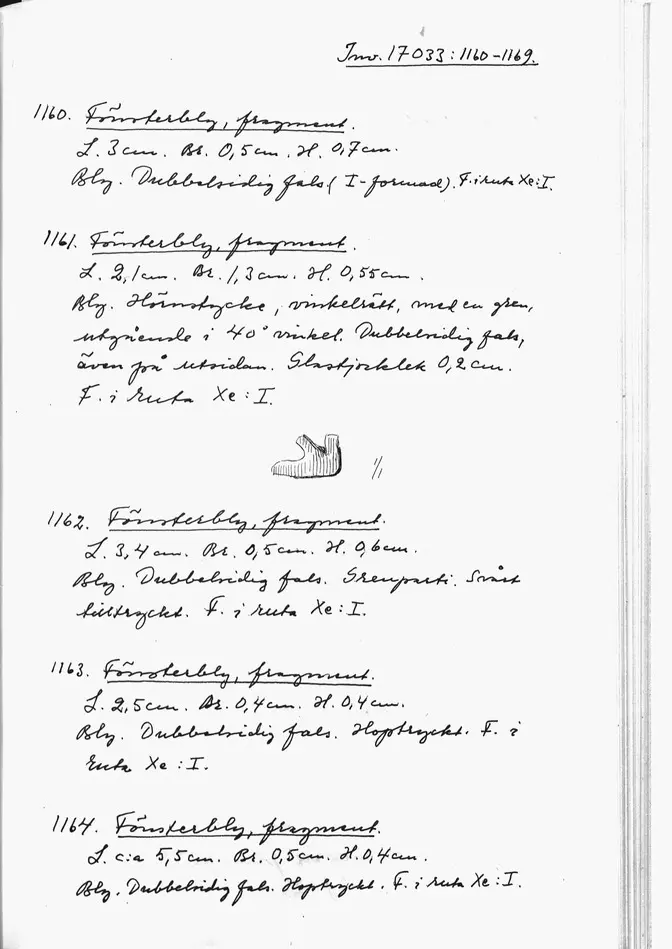 Inv. 17033:1160-1169.
1160. Fönsterbly, fragment.
L. 3 cm. Br. 0,5 cm. H. 0,7 cm.
Bly. Dubbelsidig fals (I-formad). F. i ruta Xe:I.
1161. Fönsterbly, fragment.
L. 2,1 cm. Br. 1,3 cm. H. 0,55 cm.
Bly. Hörnstycke, vinkelrätt, med en gren,
utgående i 40° vinkel. Dubbelsidig fals,
även på utsidan. Glastjocklek 0,2 cm.
F. i ruta Xe:I.
1/1
1162. Fönsterbly, fragment.
L. 3,4 cm. Br. 0,5 cm. H. 0,6 cm.
Bly. Dubbelsidig fals. Grenparti. Svårt
tilltryckt. F. i ruta Xe:I.
1163. Fönsterbly, fragment.
L. 2,5 cm. Br. 0,4 cm. H. 0,4 cm.
Bly. Dubbelsidig fals. Hoptryckt. F. i
ruta Xe:I.
1164. Fönsterbly, fragment.
L. c:a 5,5 cm. Br. 0,5 cm. H. 0,4 cm.
Bly. Dubbelsidig fals. Hoptryckt. F. i ruta Xe:I.